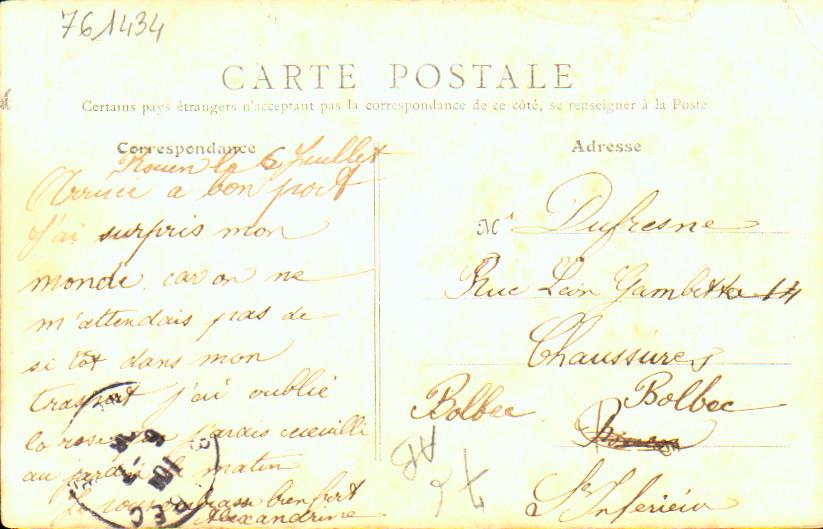 761434
CARTE POSTALE
Certains pays étrangers n'acceptant pas la correspondance de ce côté, se renseigner à la Poste
Correspondance
Rouen le 6 Juillet
Arrivée a bon port
J'ai surpris mon
monde car on ne
m'attendais pas de
si tôt dans mon
trasport j'ai oublié
la rose que j'avais ceueilli
au jardin le matin
Je vous embrasse bien fort
Alexandrine
Adresse
Mr Dufresne
Rue Léon Gambetta 14
Chaussures
Bolbec Bolbec
Sne Inferieur